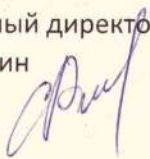 ный директо
ин